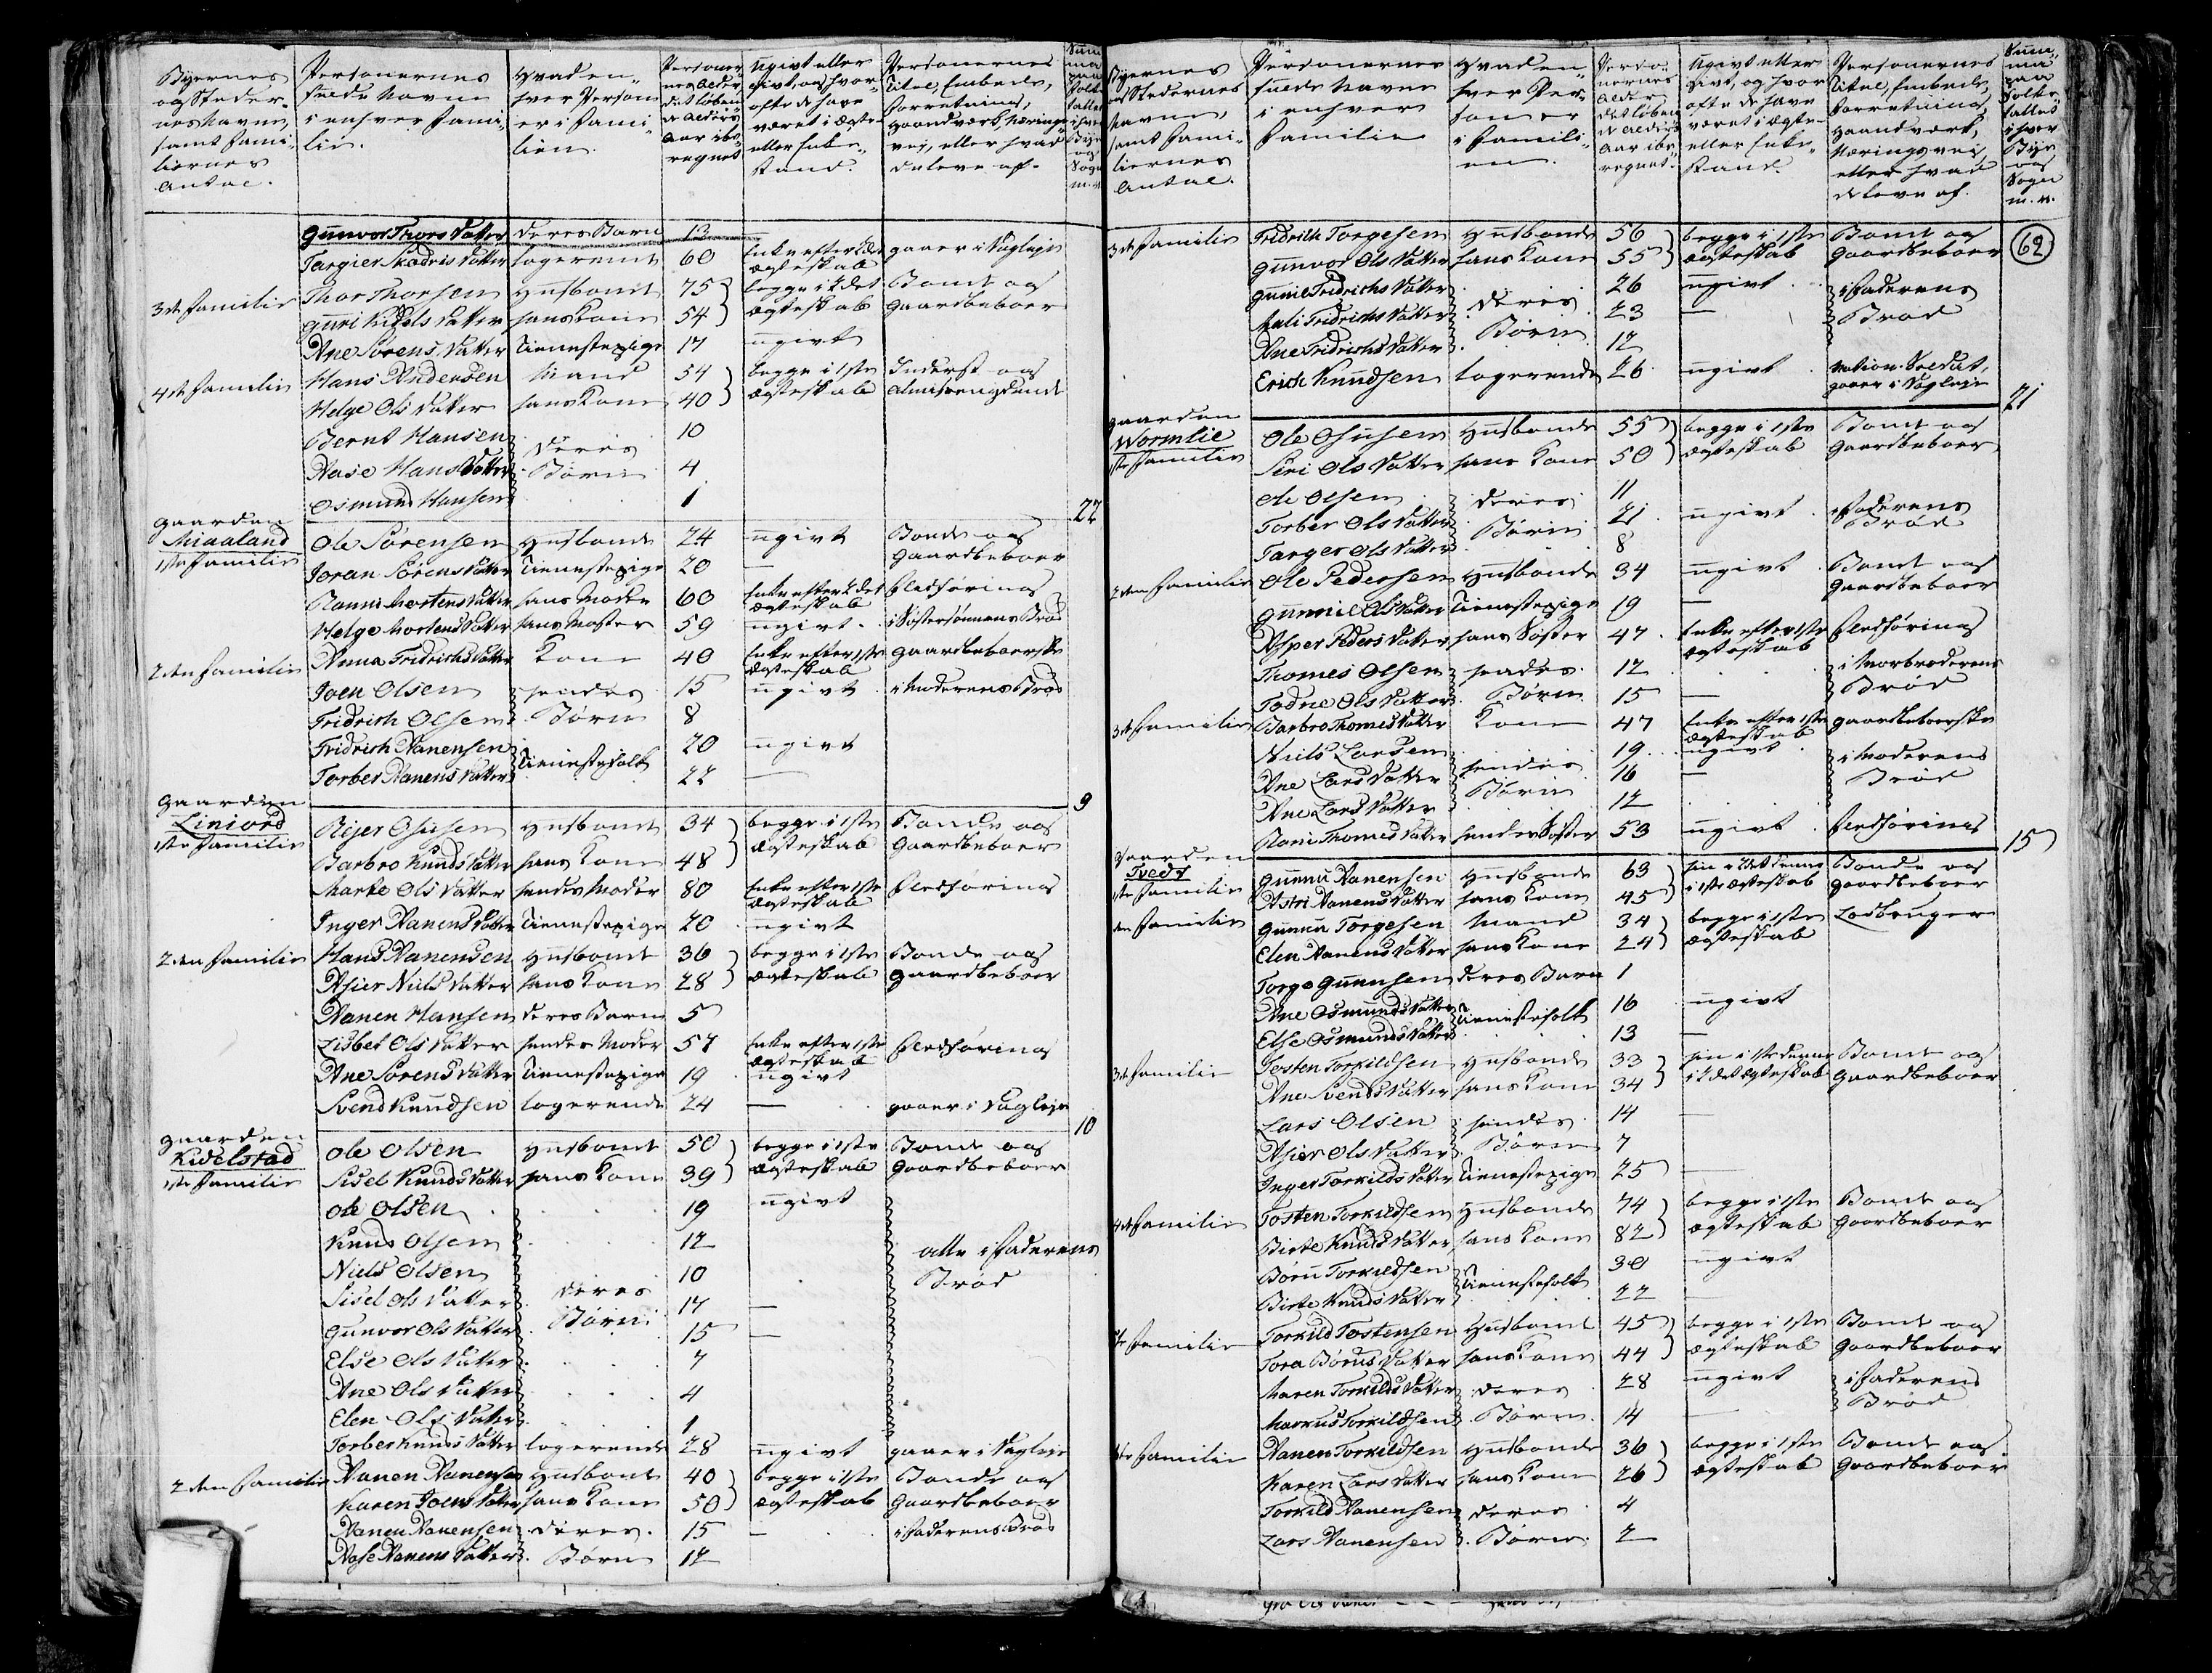 Byernes og Stedernes Navne, samt Familiernes Antal.
Personernes fulde Navne i enhver Familie.
Hvad enhver Person er i Familien.
Personernes Alder, det løbende Alders Aar iberegnet
Ugivt eller givt, og hvor ofte de have været i Ægte- eller Enkestand.
Personernes Titel, Embede, Forretning, Haandværk, Næringsvej, eller hvad de leve af.
Gunvor Thors Datter deres Barn 13
Targier Datter logerende 60 Enke efter 2det ægteskab gaaer i Dagleje
3de Familie Thor Thorsen Husbonde 75 begge i 2det ægteskab Bonde og Gaardbeboer
Guri Kiels Datter hans Kone 54
Ane Sørens Datter Tienestepige 17 ugivt
4de Familie Hans Andersen Mand 54 begge i 1ste ægteskab Inderst og
Helge Ols Datter hans Kone 40
Bernt Hansen deres Børn 10
Aase Hans Datter 4
Osmund Hansen 1
22
Gaarden Miaaland
1ste Familie Ole Sørensen Husbonde 24 ugivt Bonde og Gaardbeboer
Joran Sørens Datter Tienestepige 20 —
Ranni Mortens Datter hans Moder 60 Enke efter 2det ægteskab Fledføring
Helge Mortens Datter hans Moster 59 ugivt i Søstersønnens Brød
2den Familie Anna Fridrichs Datter Kone 40 Enke efter 1ste ægteskab Gaardbeboerske
Joen Olsen hendes Børn 15 ugivt i Moderens Brød
Fridrich Olsen 8
Fridrich Nanensen Tienestefolk 20 ugivt
Torber Nanens Datter 22 —
9
Gaarden Liniord
1ste Familie Rejer Osulsen Husbonde 34 begge i 1ste ægteskab Bonde og Gaardbeboer
Barbro Knuds Datter hans Kone 48
Marte Ols Datter hendes Moder 80 Enke efter 1ste ægteskab Fledføring
Inger Nanens Datter Tienestepige 20 ugivt
2den Familie Hans Nanensen Husbonde 36 begge i 1ste ægteskab Bonde og Gaardbeboer
Asier Niels Datter hans Kone 28
Nanen Hansen deres Barn 5
Lisbet Ols Datter hendes Moder 57 Enke efter 1ste ægteskab Fledføring
Ane Sørens Datter Tienestepige 19 ugivt
Svend Knudsen logerende 24 — gaaer i Dagleje
10
Gaarden Kidelstad
1ste Familie Ole Olsen Husbonde 50 begge i 1ste ægteskab Bonde og Gaardbeboer
Sisel Knuds Datter hans Kone 39
Ole Olsen 19 ugivt
Knud Olsen 12
Niels Olsen deres Børn 10 alle i Faderens Brød
Sisel Ols Datter 17 —
Gunvor Ols Datter 15 —
Else Ols Datter 7
Ane Ols Datter 4
Elen Ols Datter 1
Torber Knuds Datter logerende 28 ugivt gaaer i Dagleje
2den Familie Nanen Nanensen Husbonde 40 begge i 1ste ægteskab Bonde og Gaardbeboer
Karen Joens Datter hans Kone 50
Nanen Nanensen deres Børn 15 — i Faderens Brød
Aase Nanens Datter 12
Byernes og Stedernes Navne, samt Familiernes Antal.
Personernes fulde Navne i enhver Familie
Hvad enhver Person er i Familien.
Personernes Alder det løbende Alders Aar iberegnet.
Ugivt eller givt, og hvor ofte de have været i Ægte- eller Enkestand.
Personernes Titel, Embede, Forretning, Haandværk, Næringsvei, eller hvad de leve af.
Summa paa Folketallet i hver Bye og Sogn m. v.
62
3de Familie Fridrich Torgesen Husbonde 56 begge i 1ste ægteskab Bonde og Gaardbeboer
Gunvor Ols Datter hans Kone 55
Gunil Fridrichs Datter deres Børn 26 ugivt i Faderens Brød
Mali Fridrichs Datter 23 —
Ane Fridrichs Datter 12
Erich Knudsen logerende 26 ugivt Nation. Soldat, gaaer i Dagleje
21
Gaarden Wormlie
1ste Familie Ole Osulsen Husbonde 55 begge i 1ste ægteskab Bonde og Gaardbeboer
Siri Ols Datter hans Kone 50
Ole Olsen deres Børn 11
Torber Ols Datter 21 ugivt i Faderens Brød
Targer Ols Datter 8
2den Familie Ole Pedersen Husbonde 34 ugivt Bonde og Gaardbeboer
Gunnil Ols Datter Tienestepige 19 —
Asper Peders Datter hans Søster 47 Enke efter 1ste ægteskab Fledføring
Thomes Olsen hendes Børn 12 i Morbroderens Brød
Todne Ols Datter 15 —
3de Familie Barbro Thomes Datter Kone 47 Enke efter 1ste ægteskab Gaardbeboerske
Niels Larsen hendes Børn 19 ugivt i Moderens Brød
Ane Lars Datter 16 —
Ane Lars Datter 12
Rani Thomes Datter hendes Søster 53 ugivt Fledføring
15
Gaarden Tvedt
1ste Familie Gunnu Nanensen Husbonde 63 han i 2det denne i 1ste ægteskab Bonde og Gaardbeboer
Astri Nanens Datter hans Kone 45
Familie Gunnu Torgesen Mand 34 begge i 1ste ægteskab Lodbruger
Elen Nanens Datter hans Kone 24
Torge Gunnusen deres Barn 1
Ane Osmunds Datter Tienestefolk 16 ugivt
Else Osmunds Datter 13 —
3de Familie Tosten Torkildsen Husbonde 33 han i 1ste denne i 2det ægteskab Bonde og Gaardbeboer
Ane Svends Datter hans Kone 34
Lars Olsen hendes Børn 14 —
Asier Ols Datter 7
Inger Torkilds Datter Tienestepige 25 —
4de Familie Tosten Torkildsen Husbonde 74 begge i 1ste ægteskab Bonde og Gaardbeboer
Birte Knuds Datter hans Kone 82
Børu Torkildsen Tienestefolk 30 ugivt
Birte Knuds Datter 22 —
Familie Torkild Tostensen Husbonde 45 begge i 1ste ægteskab Bonde og Gaardbeboer
Tora Børus Datter hans Kone 44
Maren Torkilds Datter deres Børn 28 ugivt i Faderens Brød
Markus Torkildsen 14 —
Familie Nanen Torkildsen Husbonde 36 begge i 1ste ægteskab Bonde og Gaardbeboer
Karen Lars Datter hans Kone 26
Torkild Nanensen deres Børn 4
Lars Nanensen 2